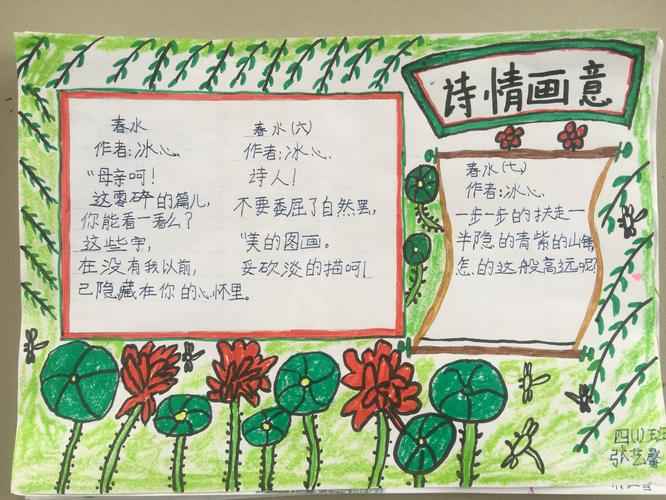 诗情画意
春水
作者:冰心
"母亲呵!
这零碎的篇儿,
你能看一看么?
这些字,
在没有我以前,
已隐藏在你的心怀里。
春水(六)
作者:冰心
诗人!
不要委屈了自然罢,
"美的图画。
要砍淡的描呵!
春水(七)
作者:冰心
一步一步的扶走一
半隐的青紫的山峰
怎的这般高远呢
四(1)班
张艺馨